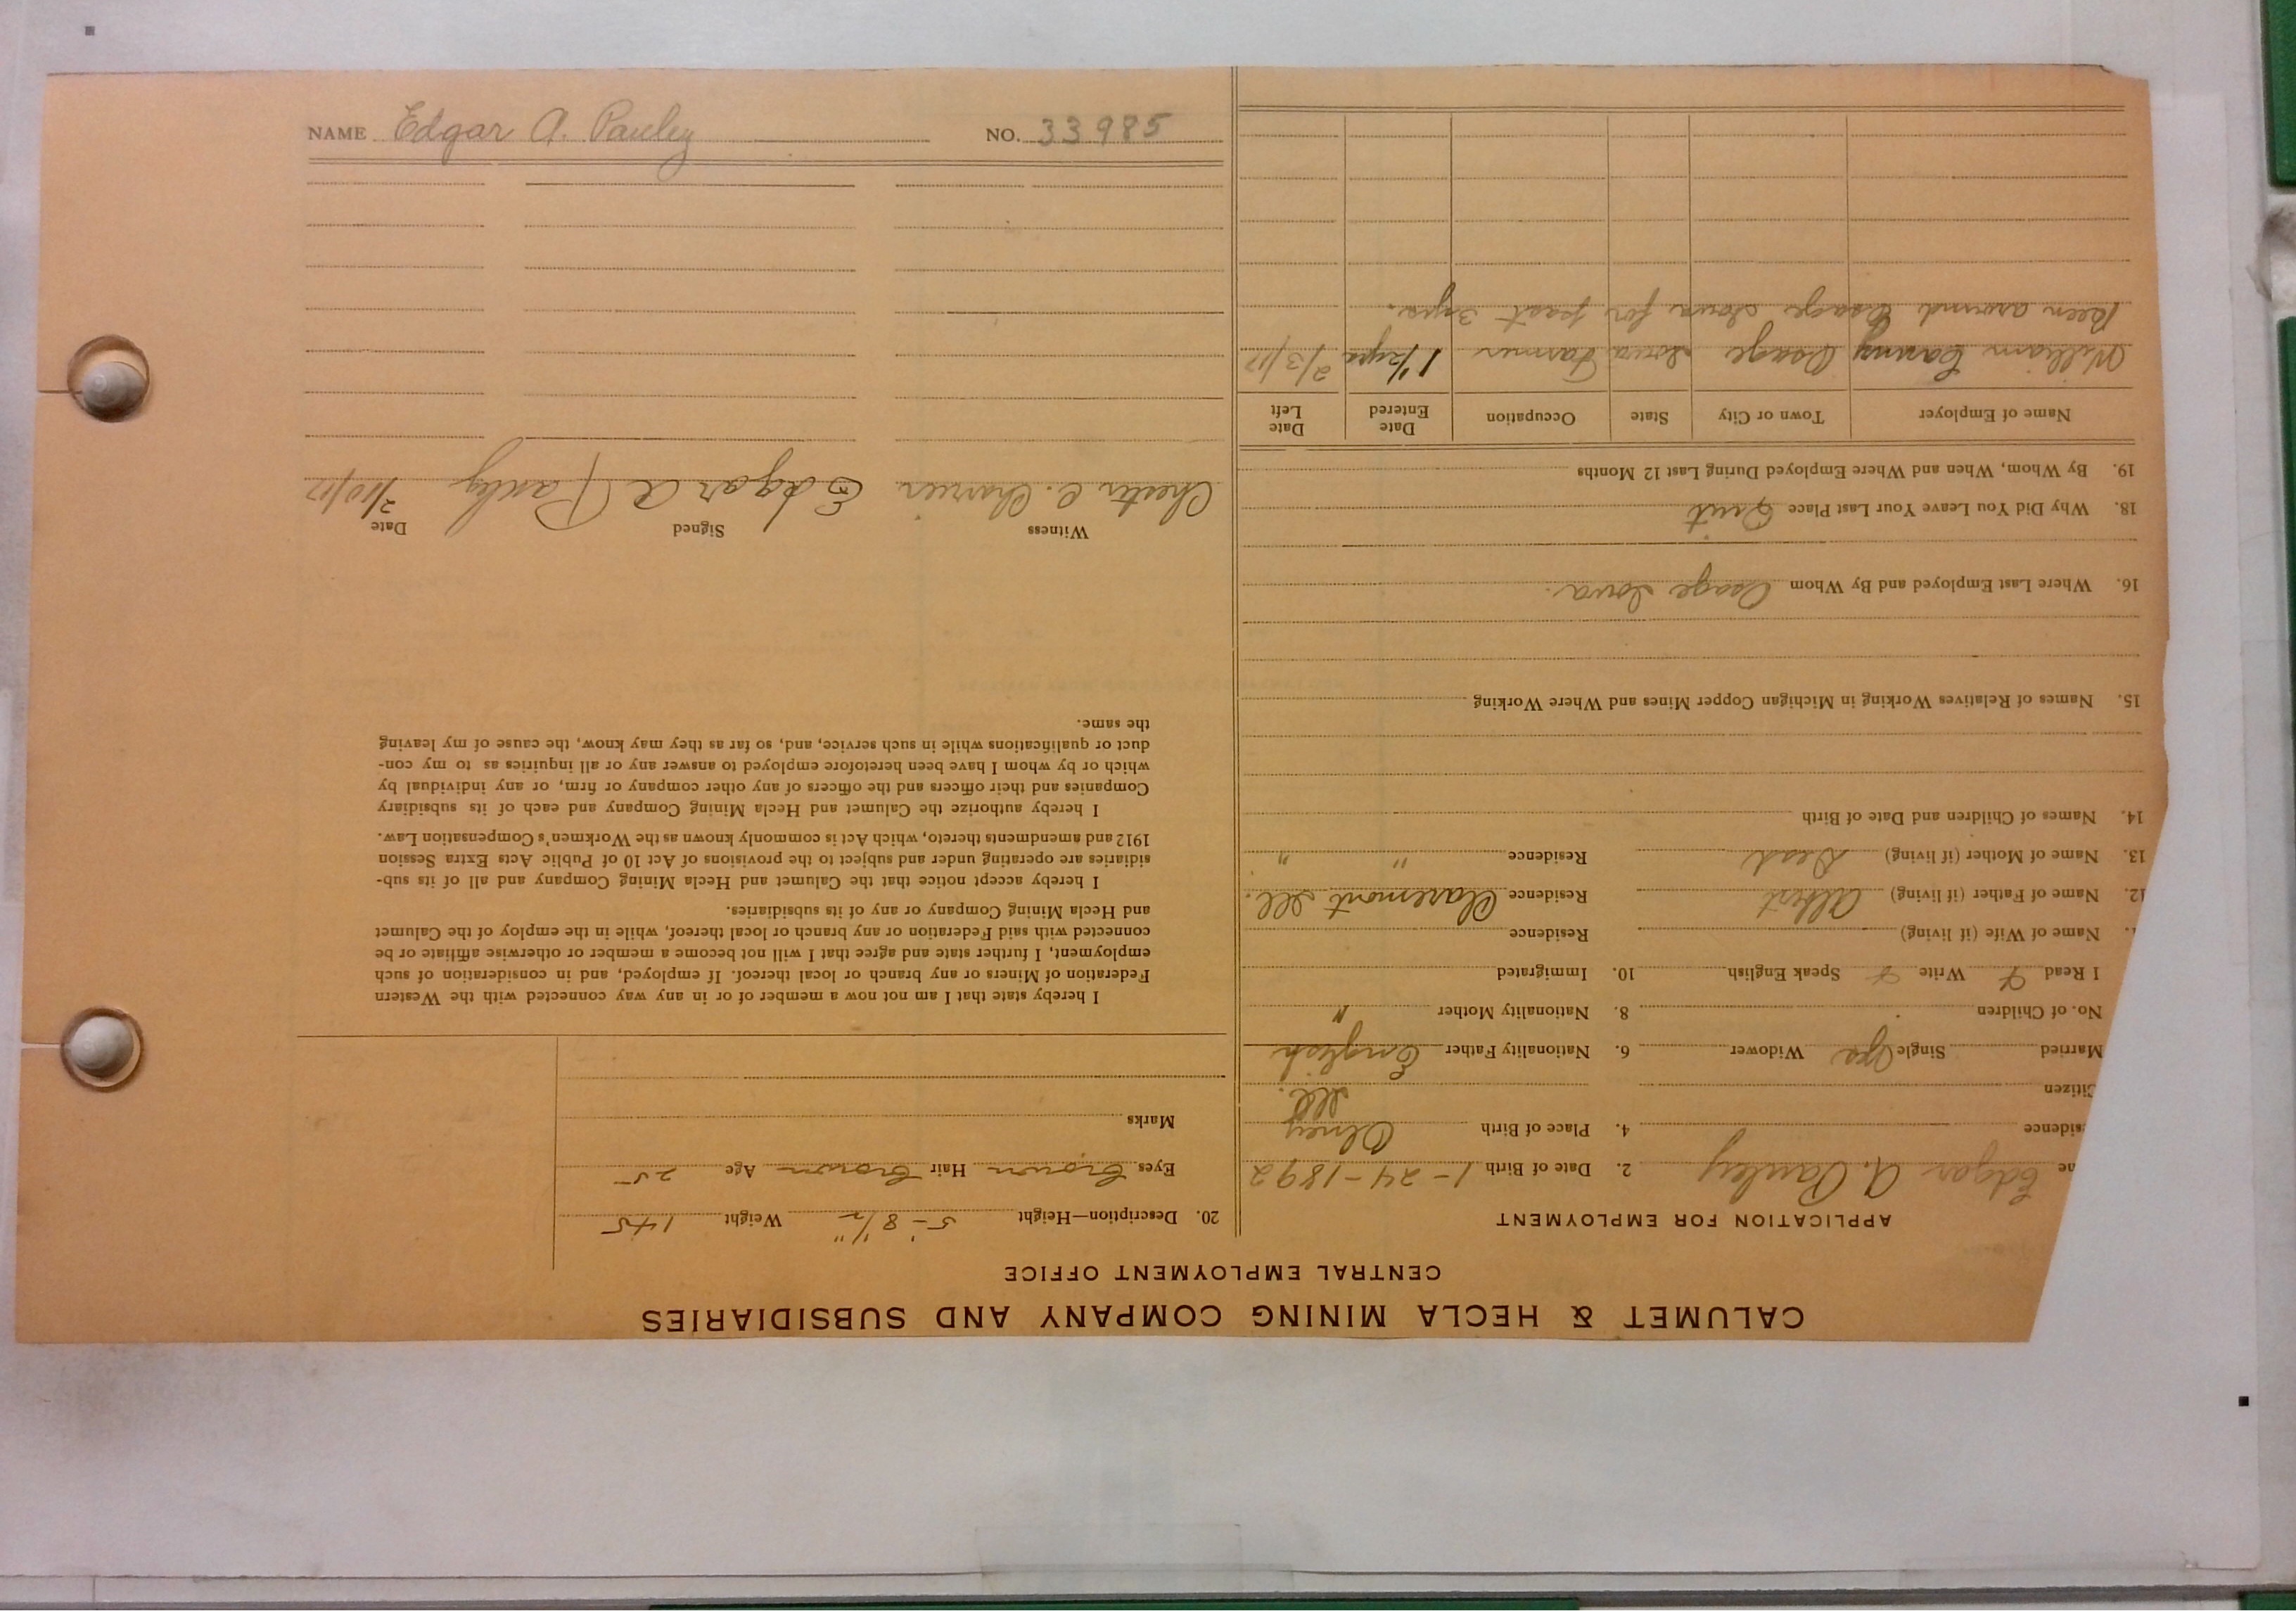 NAME Edgar A. Pauley NO. 33985
CALUMET & HECLA MINING COMPANY AND SUBSIDIARIES
CENTRAL EMPLOYMENT OFFICE
APPLICATION FOR EMPLOYMENT
me Edgar A. Pauley 2. Date of Birth 1-24-1892
sidence 4. Place of Birth Olney
Ill.
Citizen
Married Single Yes Widower 6. Nationality Father English
No. of Children 8. Nationality Mother "
I Read Write Speak English 10. Immigrated
Name of Wife (if living) Residence
12. Name of Father (if living) Albert Residence Claremont Ill.
13. Name of Mother (if living) Dead Residence " "
14. Names of Children and Date of Birth
15. Names of Relatives Working in Michigan Copper Mines and Where Working
16. Where Last Employed and By Whom Osage Iowa.
18. Why Did You Leave Your Last Place Quit
19. By Whom, When and Where Employed During Last 12 Months
Name of Employer Town or City State Occupation Date Entered Date Left
William Osage Iowa Farmer 1 1/2 yrs 2/3/17
Been around Osage Iowa for past 3 yrs.
20. Description—Height 5'-8 1/2" Weight 145
Eyes Brown Hair Brown Age 25
Marks
I hereby state that I am not now a member of or in any way connected with the Western
Federation of Miners or any branch or local thereof. If employed, and in consideration of such
employment, I further state and agree that I will not become a member or otherwise affiliate or be
connected with said Federation or any branch or local thereof, while in the employ of the Calumet
and Hecla Mining Company or any of its subsidiaries.
I hereby accept notice that the Calumet and Hecla Mining Company and all of its sub-
sidiaries are operating under and subject to the provisions of Act 10 of Public Acts Extra Session
1912 and amendments thereto, which Act is commonly known as the Workmen's Compensation Law.
I hereby authorize the Calumet and Hecla Mining Company and each of its subsidiary
Companies and their officers and the officers of any other company or firm, or any individual by
which or by whom I have been heretofore employed to answer any or all inquiries as to my con-
duct or qualifications while in such service, and, so far as they may know, the cause of my leaving
the same.
Witness Signed Date
Chester C. Edgar A Pauley 2/10/17